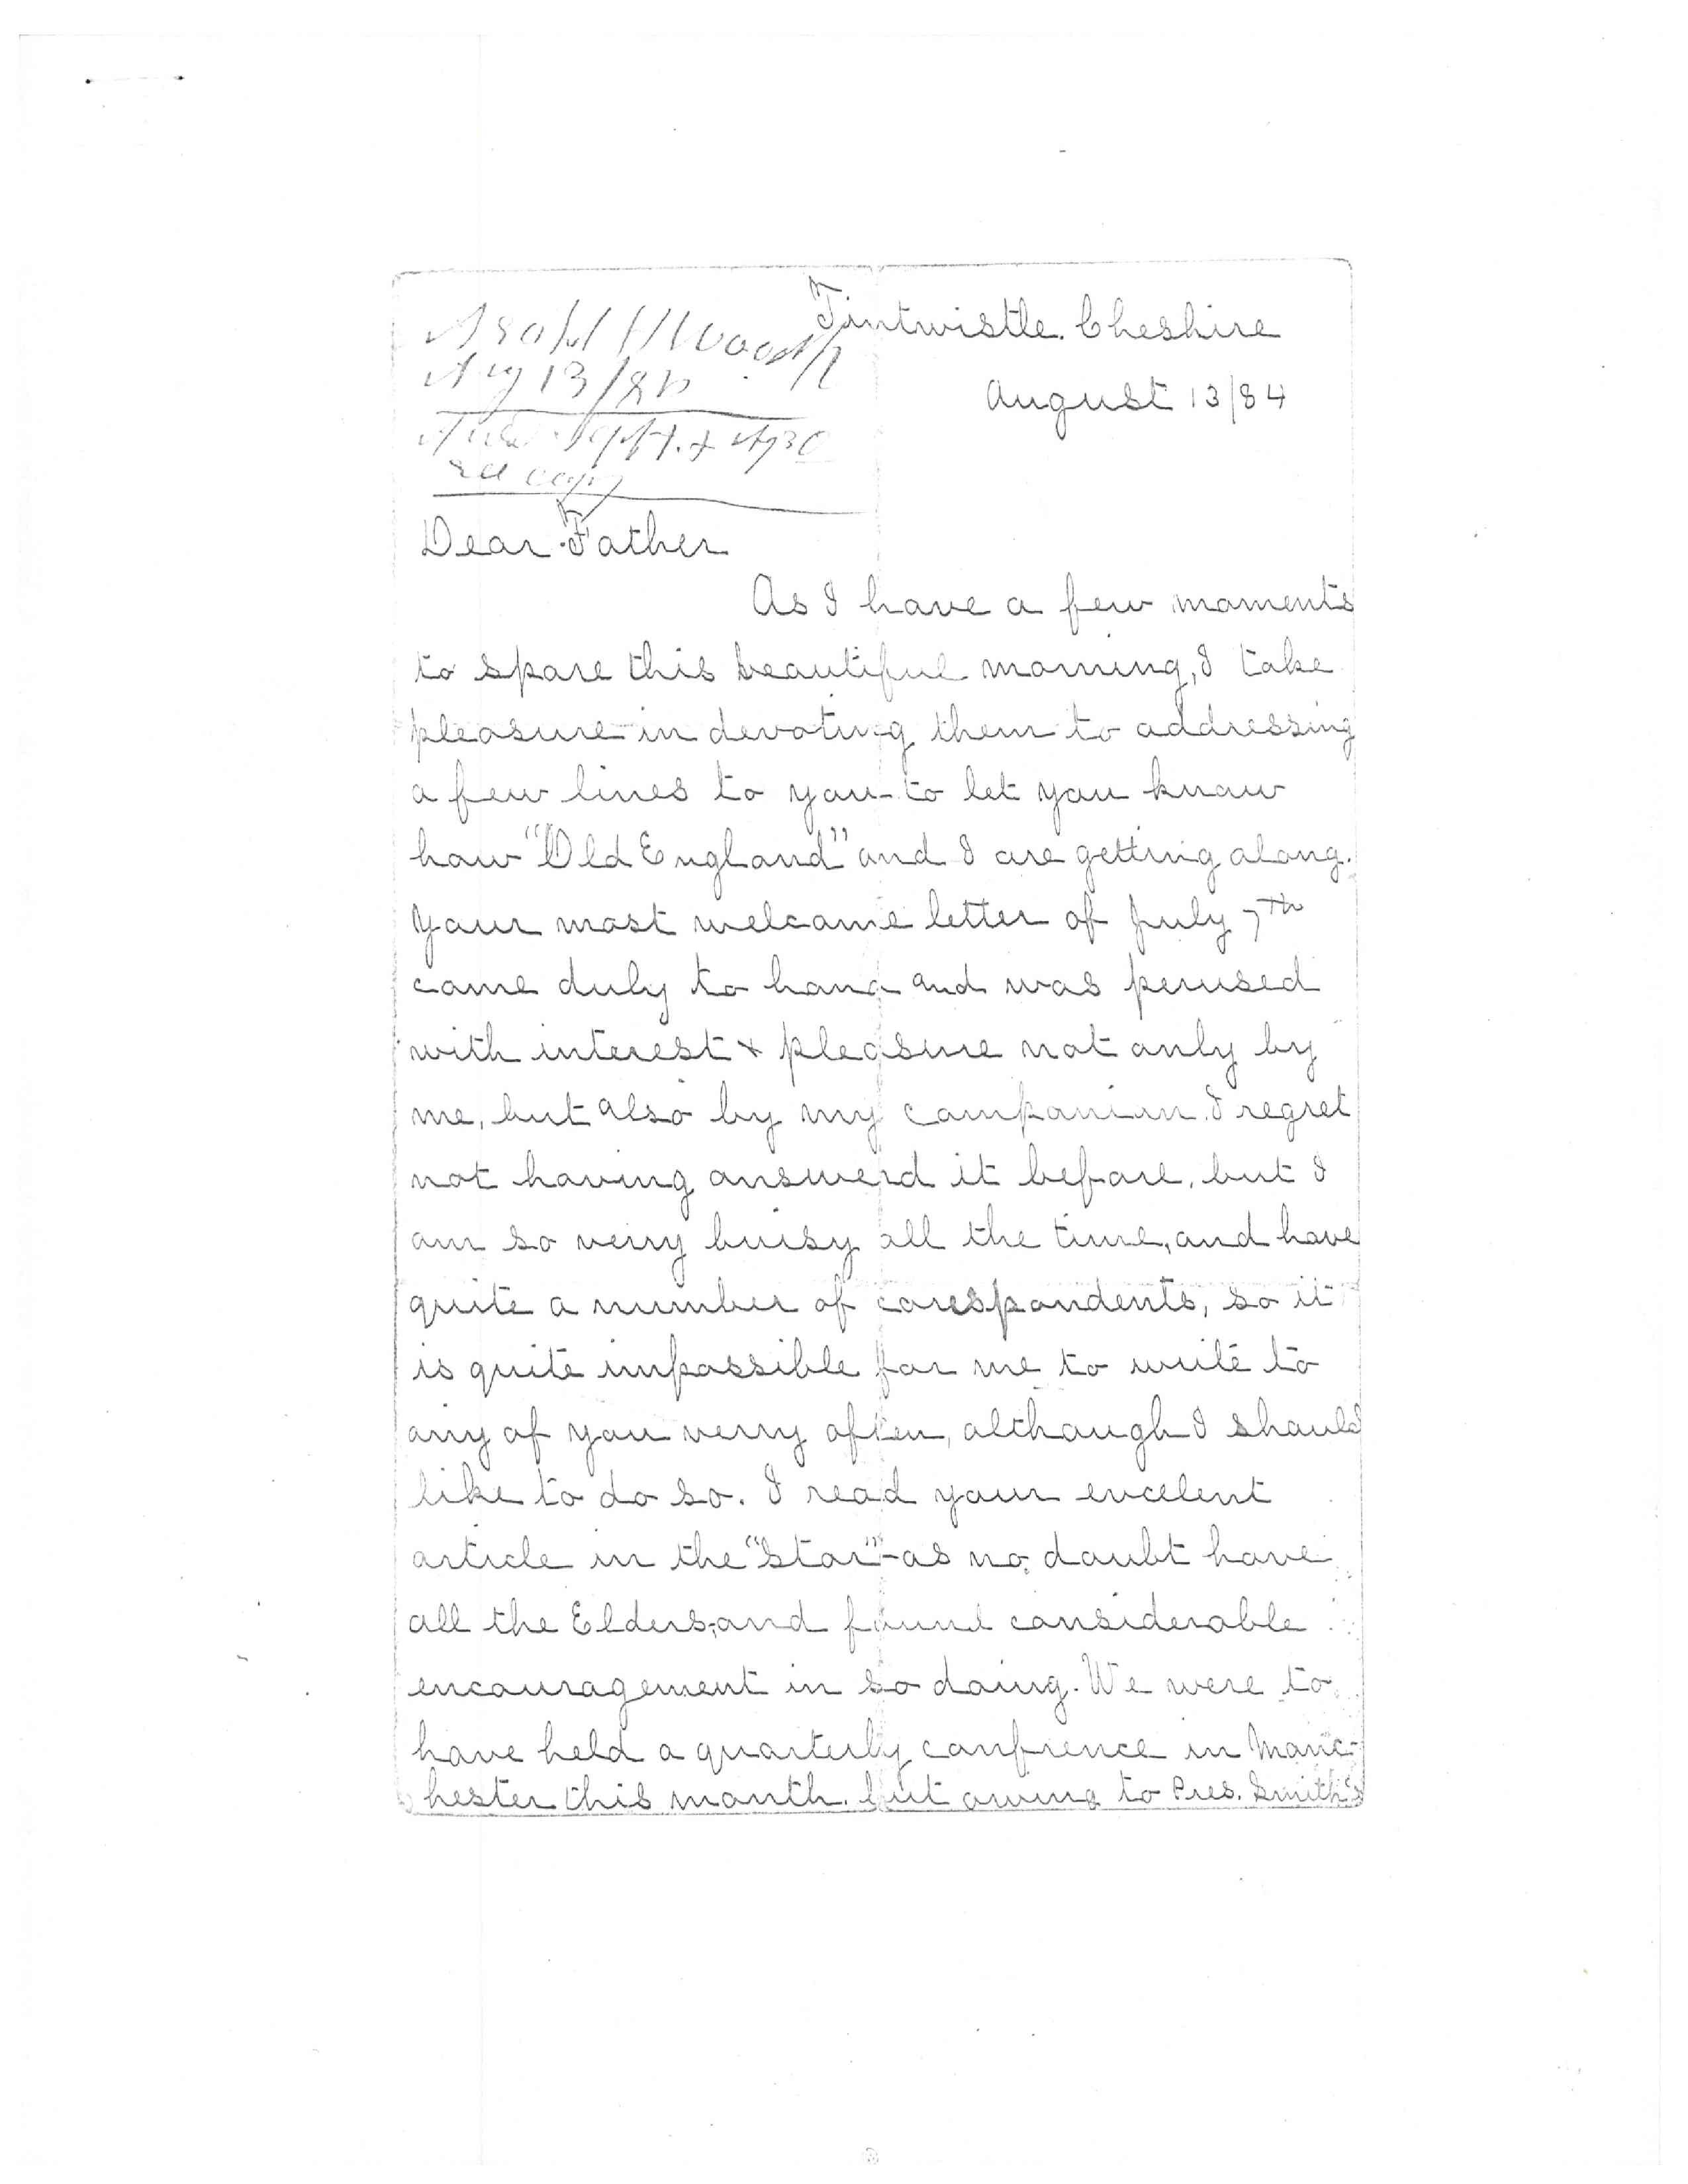 Tintwistle. Cheshire
August 13/84
Aug 13/84
Dear Father
As I have a few moments
to spare this beautiful morning, I take
pleasure in devoting them to addressing
a few lines to you to let you know
how "Old England" and I are getting along.
Your most welcome letter of July 7th
came duly to hand and was perused
with interest & pleasure not only by
me, but also by my companion. I regret
not having answerd it before, but I
am so verry buisy all the time, and have
quite a number of corespondents, so it
is quite impossible for me to write to
any of you verry often, although I should
like to do so. I read your excelent
article in the "Star" - as no doubt have
all the Elders, and found considerable
encouragement in so doing. We were to
have held a quarterly confrence in Manc-
hester this month. but owing to Pres. Smith's